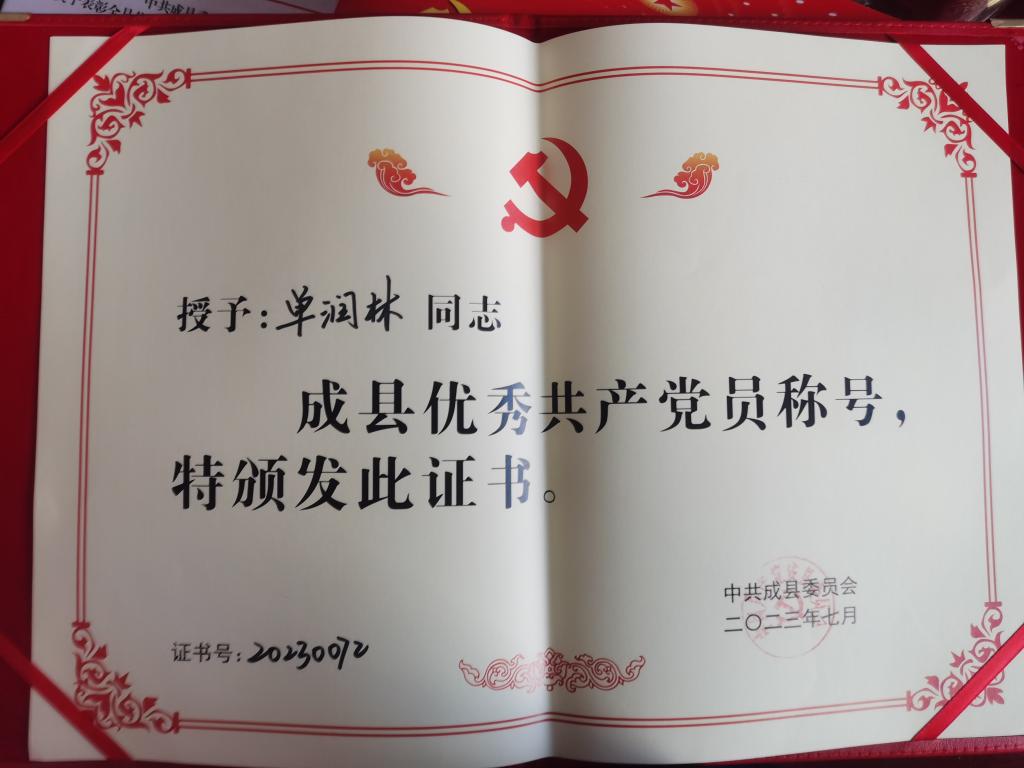 中共成县
授予:单润林 同志
成县优秀共产党员称号，
特颁发此证书。
中共成县委员会
二〇二三年七月
证书号:20230072